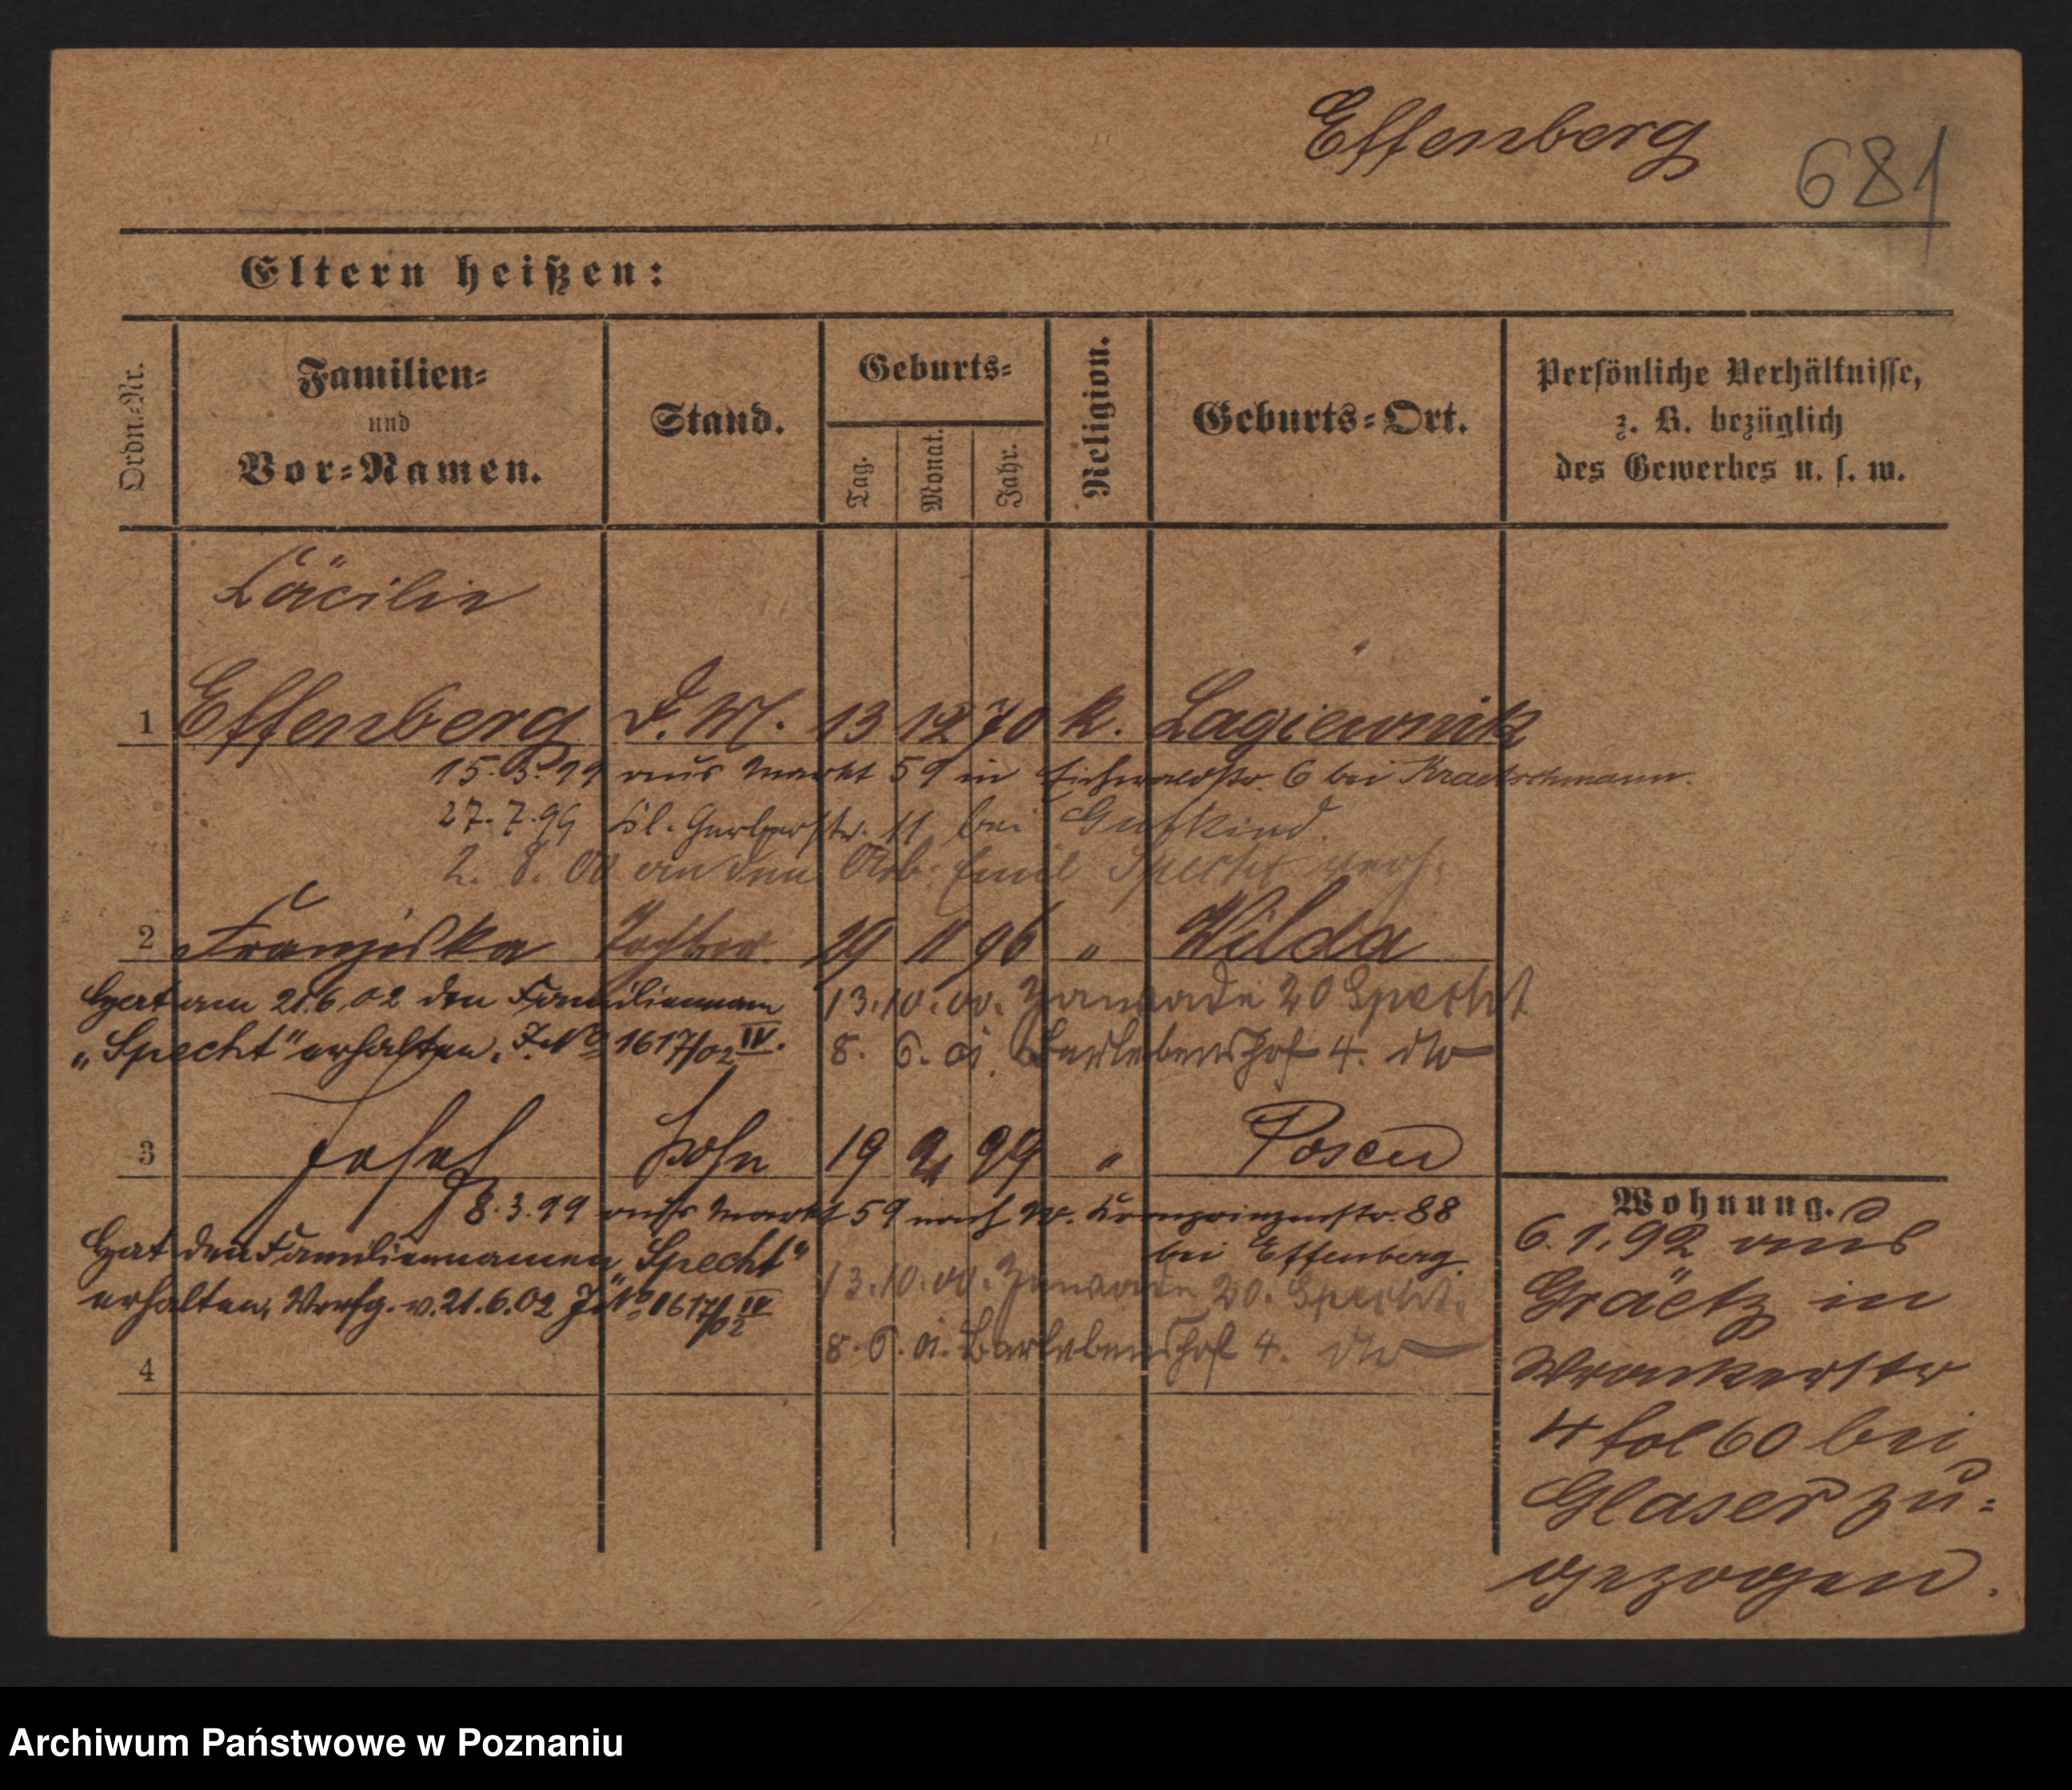 Effenberg
681
Eltern heißen:
Ordn.-Nr.
Familien-
und
Vor-Namen.
Stand.
Geburts-
Tag.
Monat.
Jahr.
Religion.
Geburts-Ort.
Persönliche Verhältnisse,
z. B. bezüglich
des Gewerbes u. s. w.
Cäcilie
1 Effenberg D. M. 13 12 70 k. Lagiewnik
15. 3. 99 aus Markt 59 in Eichwaldstr. 6 bei Kraetschmann.
27. 7. 99 Kl. Gerberstr. 11 bei Gutkind.
2. 8. 00 an den Arb. Emil Specht verh.
2 Franziska Tochter 29 11 96 " Wilda
Hat am 21.6.02 den Familiennam
„Specht" erhalten. J. No 1617/02 IV.
13.10.00. 20 Specht
8. 6. 01. Barlebenshof 4. dto
3 Josef Sohn 19 2 99 " Posen
8.3.99 aus Markt 59 nach W. Kronprinzenstr. 88
bei Effenberg.
Hat den Familiennamen „Specht"
erhalten. Verfg. v. 21.6.02 J. No 1617/02 IV
13.10.00. 20. Specht.
8. 6. 01. Barlebenshof 4. dto
4
Wohnung.
6.1.92 aus
Graetz in
Wronkerstr
4 fol 60 bei
Glaser zu-
gezogen.
Archiwum Państwowe w Poznaniu